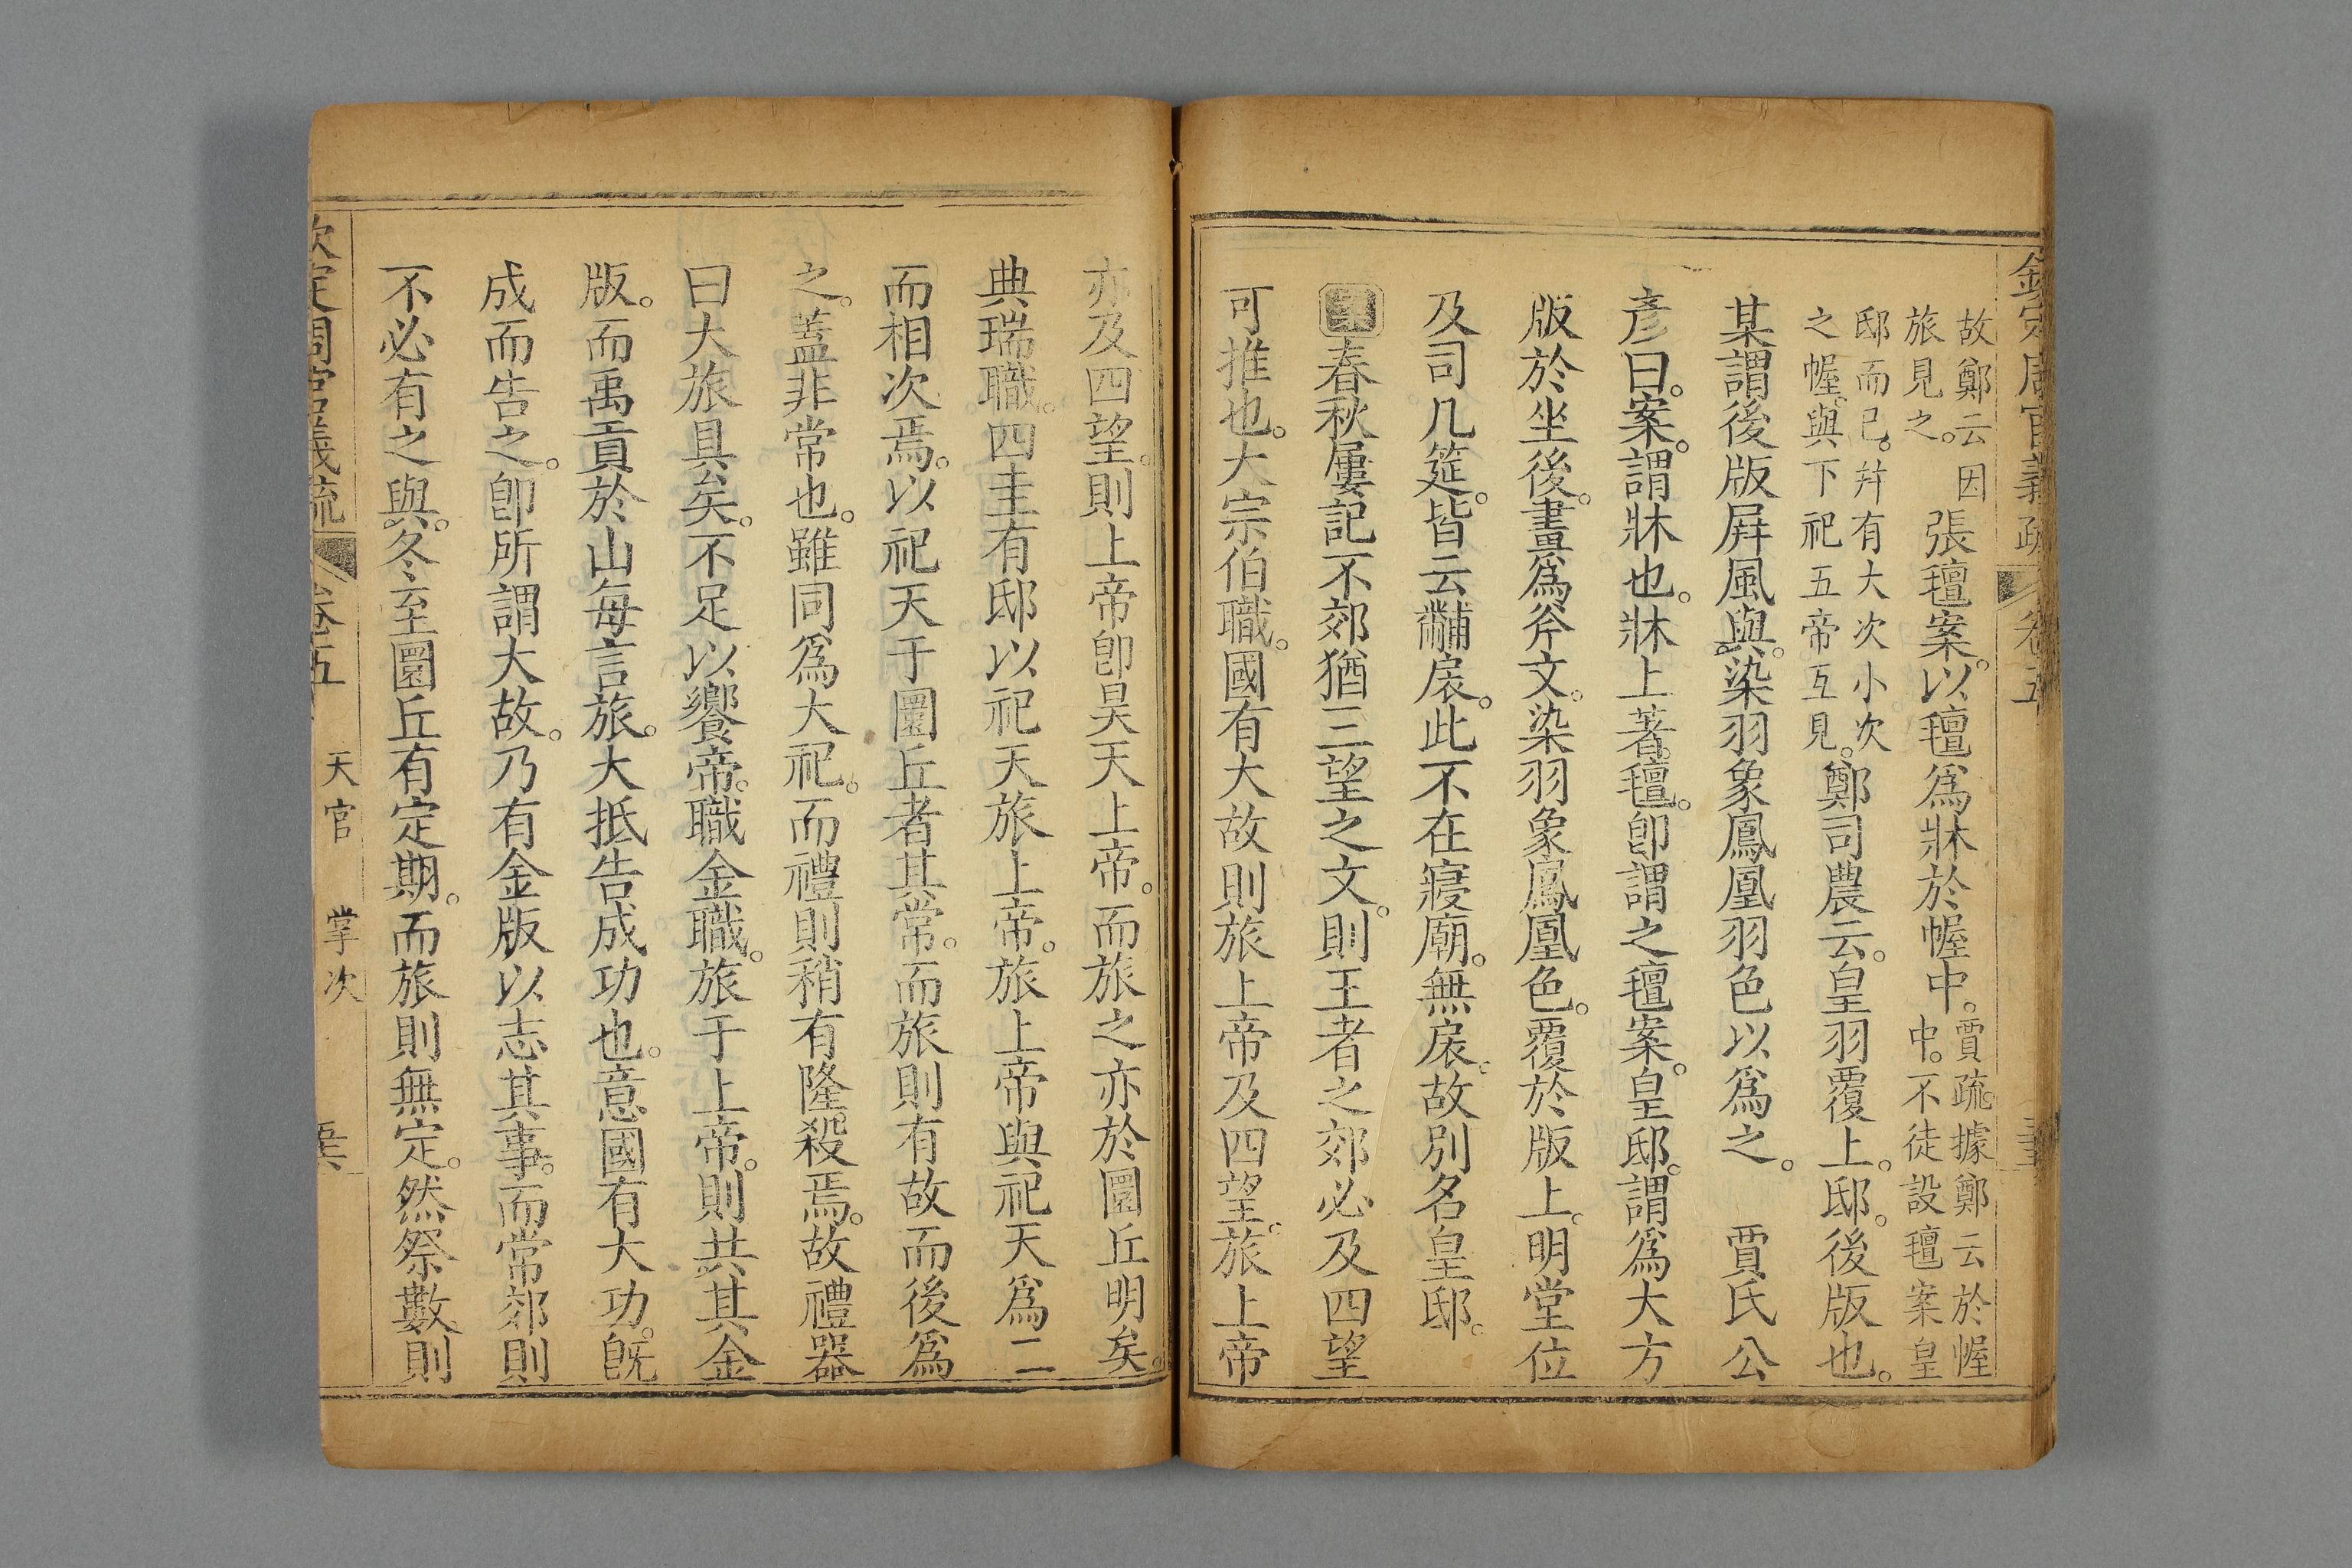 欽定周官義疏 卷五
故鄭云因
旅見之。
張氊案。以氊爲牀於幄中。
賈疏。據鄭云於幄
中。不徒設氊案皇
邸而已。幷有大次小次
之幄。與下祀五帝互見。
鄭司農云。皇羽覆上。邸。後版也。
某謂後版屛風與。染羽象鳳凰羽色以爲之。 賈氏公
彥曰。案。謂牀也。牀上著氊。卽謂之氊案。皇邸。謂爲大方
版於坐後。畫爲斧文。染羽象鳳凰色。覆於版上。明堂位
及司几筵。皆云黼扆。此不在寢廟。無扆。故別名皇邸。
案春秋屢記不郊猶三望之文。則王者之郊必及四望
可推也。大宗伯職。國有大故則旅上帝及四望。旅上帝
亦及四望。則上帝卽昊天上帝。而旅之亦於圜丘明矣。
典瑞職。四圭有邸以祀天旅上帝。旅上帝與祀天爲二
而相次焉。以祀天于圜丘者其常。而旅則有故而後爲
之。蓋非常也。雖同爲大祀。而禮則稍有隆殺焉。故禮器
曰大旅具矣。不足以饗帝。職金職。旅于上帝。則共其金
版。而禹貢於山每言旅。大抵告成功也。意國有大功。旣
成而告之。卽所謂大故。乃有金版以志其事。而常郊則
不必有之與。冬至圜丘有定期。而旅則無定。然祭數則
欽定周官義疏 卷五 天官 掌次